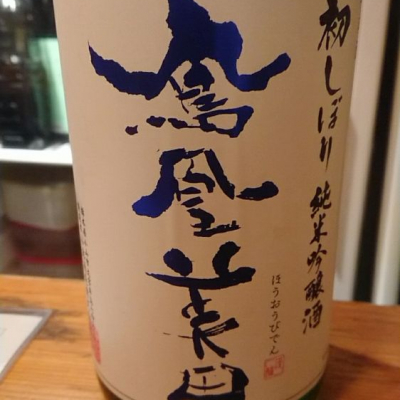 初しぼり 純米吟醸酒
鳳凰美田
ほうおうびでん